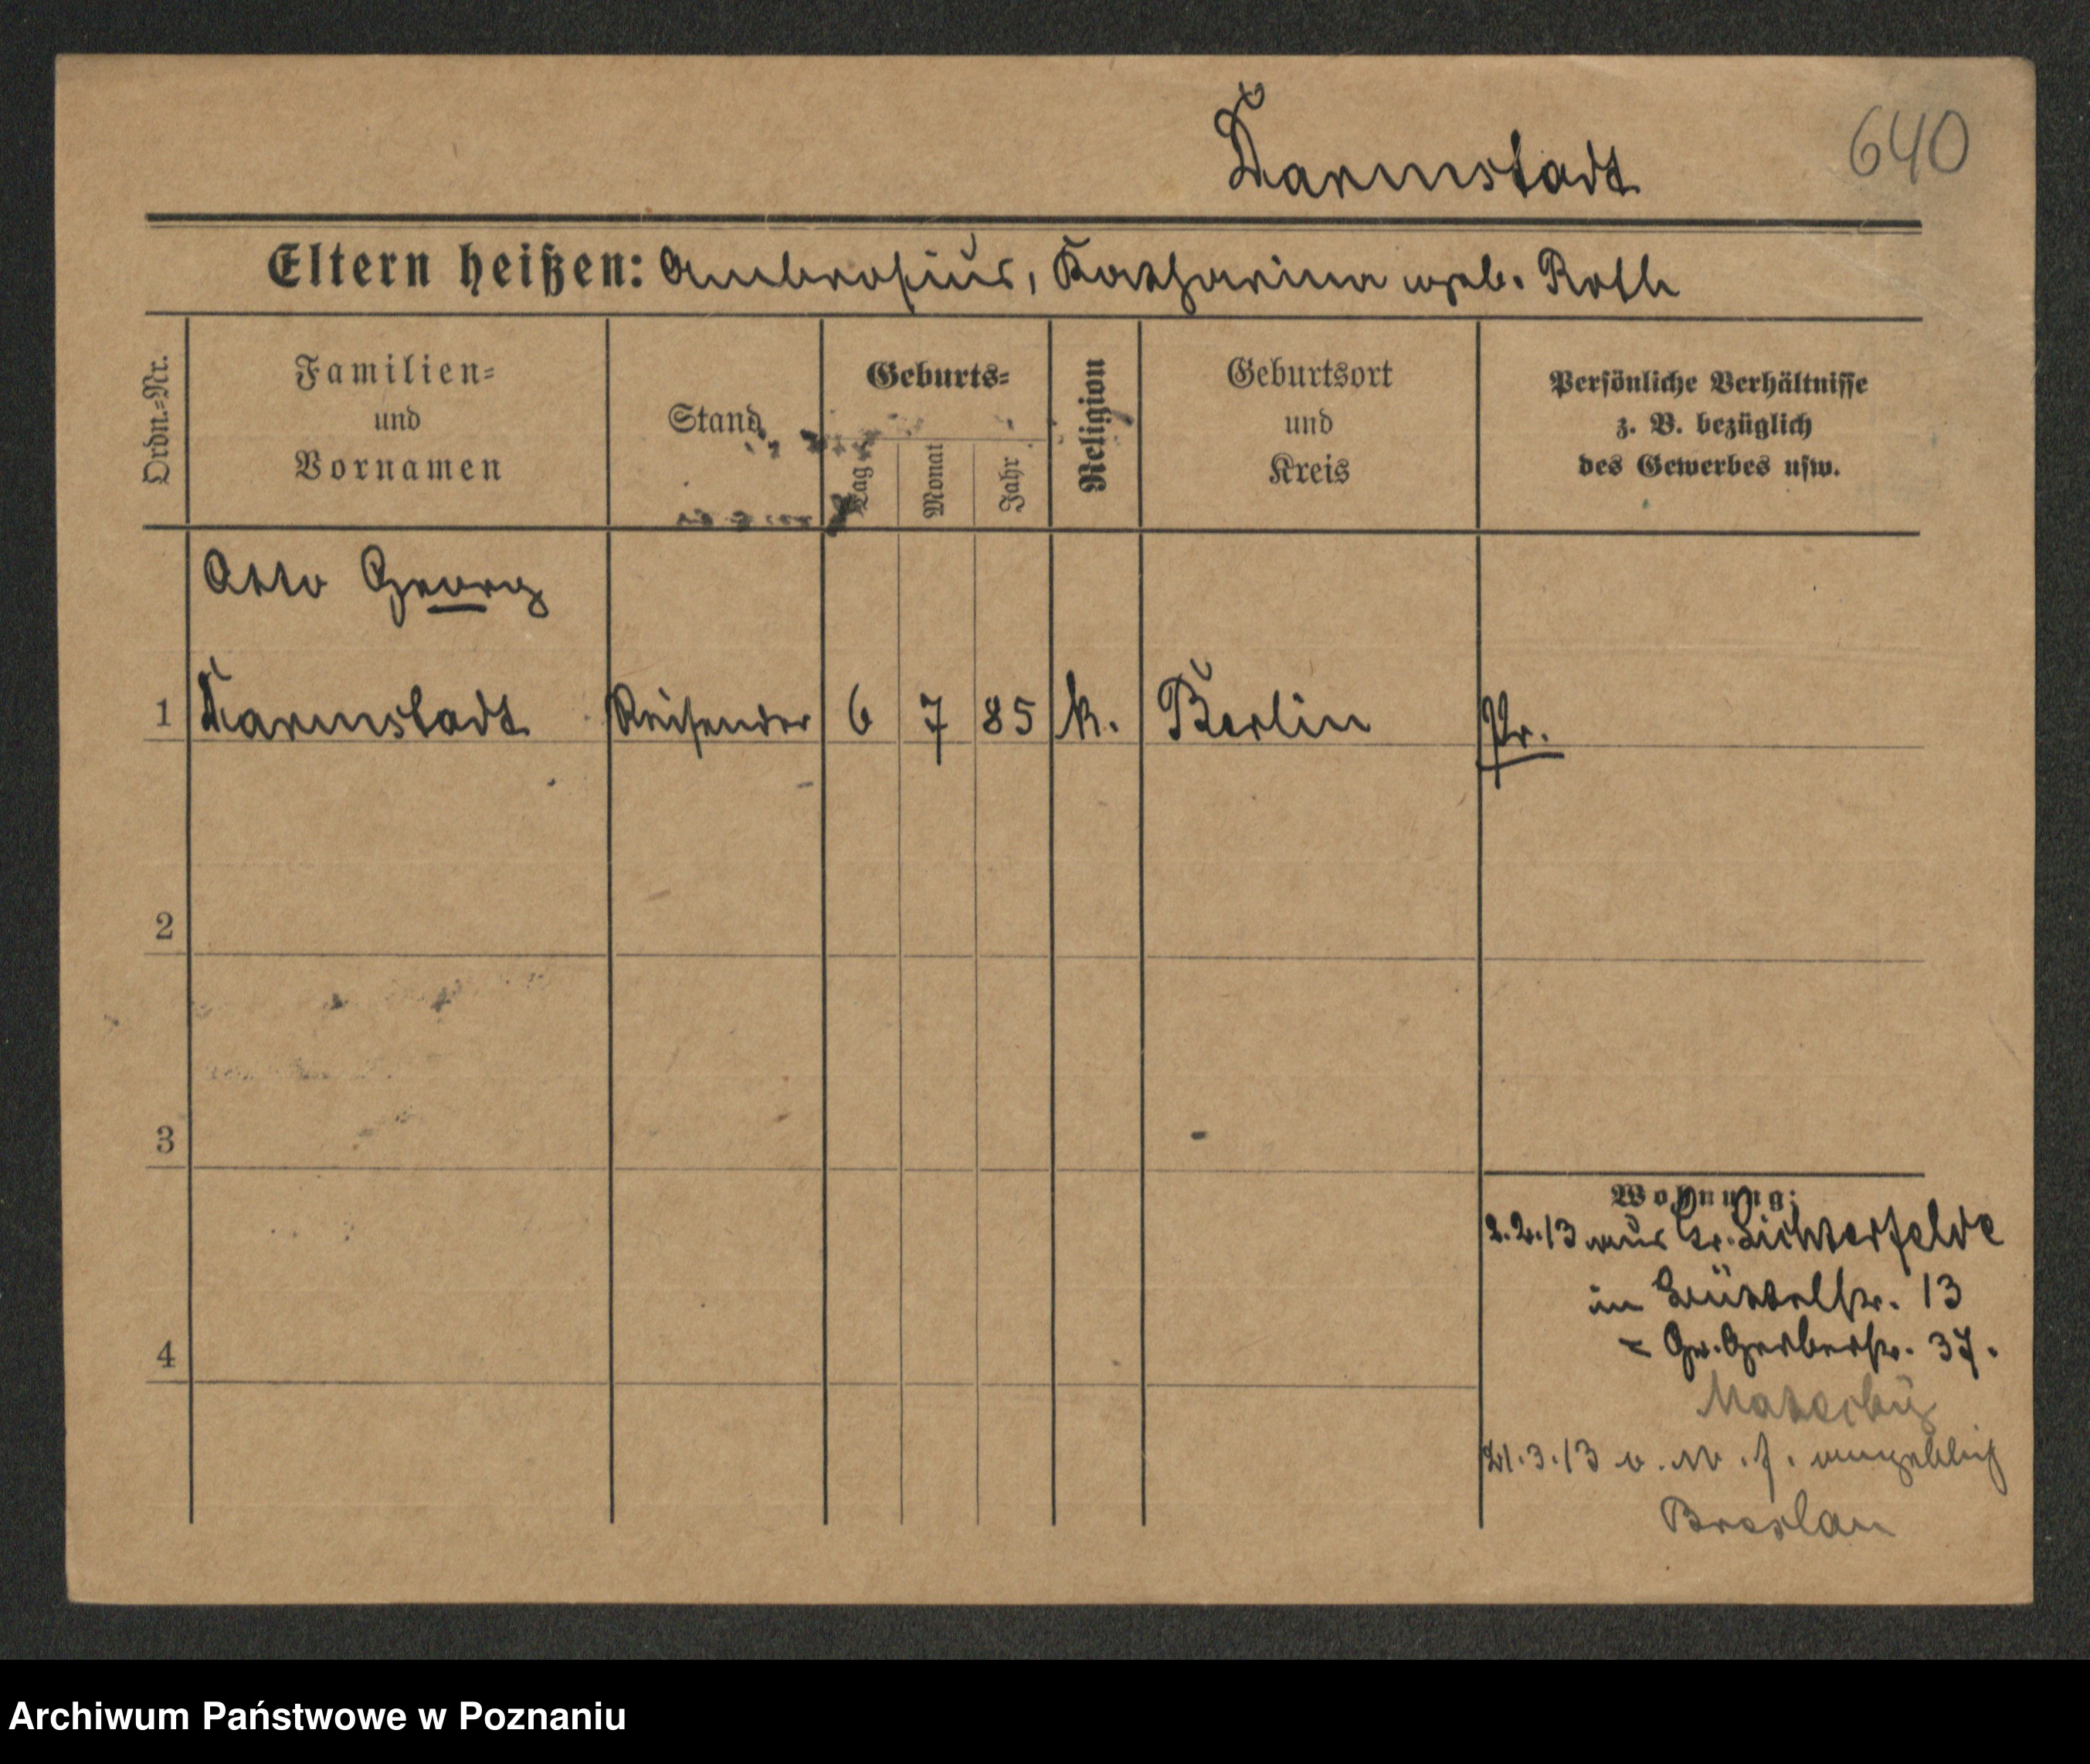 Darmstadt
640
Eltern heißen: Ambrosius, Katharina geb. Roth
Ordn.-Nr.
Familien-
und
Vornamen
Stand
Geburts-
Tag
Monat
Jahr
Religion
Geburtsort
und
Kreis
Persönliche Verhältnisse
z. B. bezüglich
des Gewerbes usw.
Otto Georg
1 Darmstadt Reisender 6 7 85 k. Berlin Pr.
2
3
4
Wohnung:
2.2.13 aus Gr. Lichterfelde
in 13
= Gr. Gerberstr. 37.
21.3.13 angeblich
Breslau
Archiwum Państwowe w Poznaniu